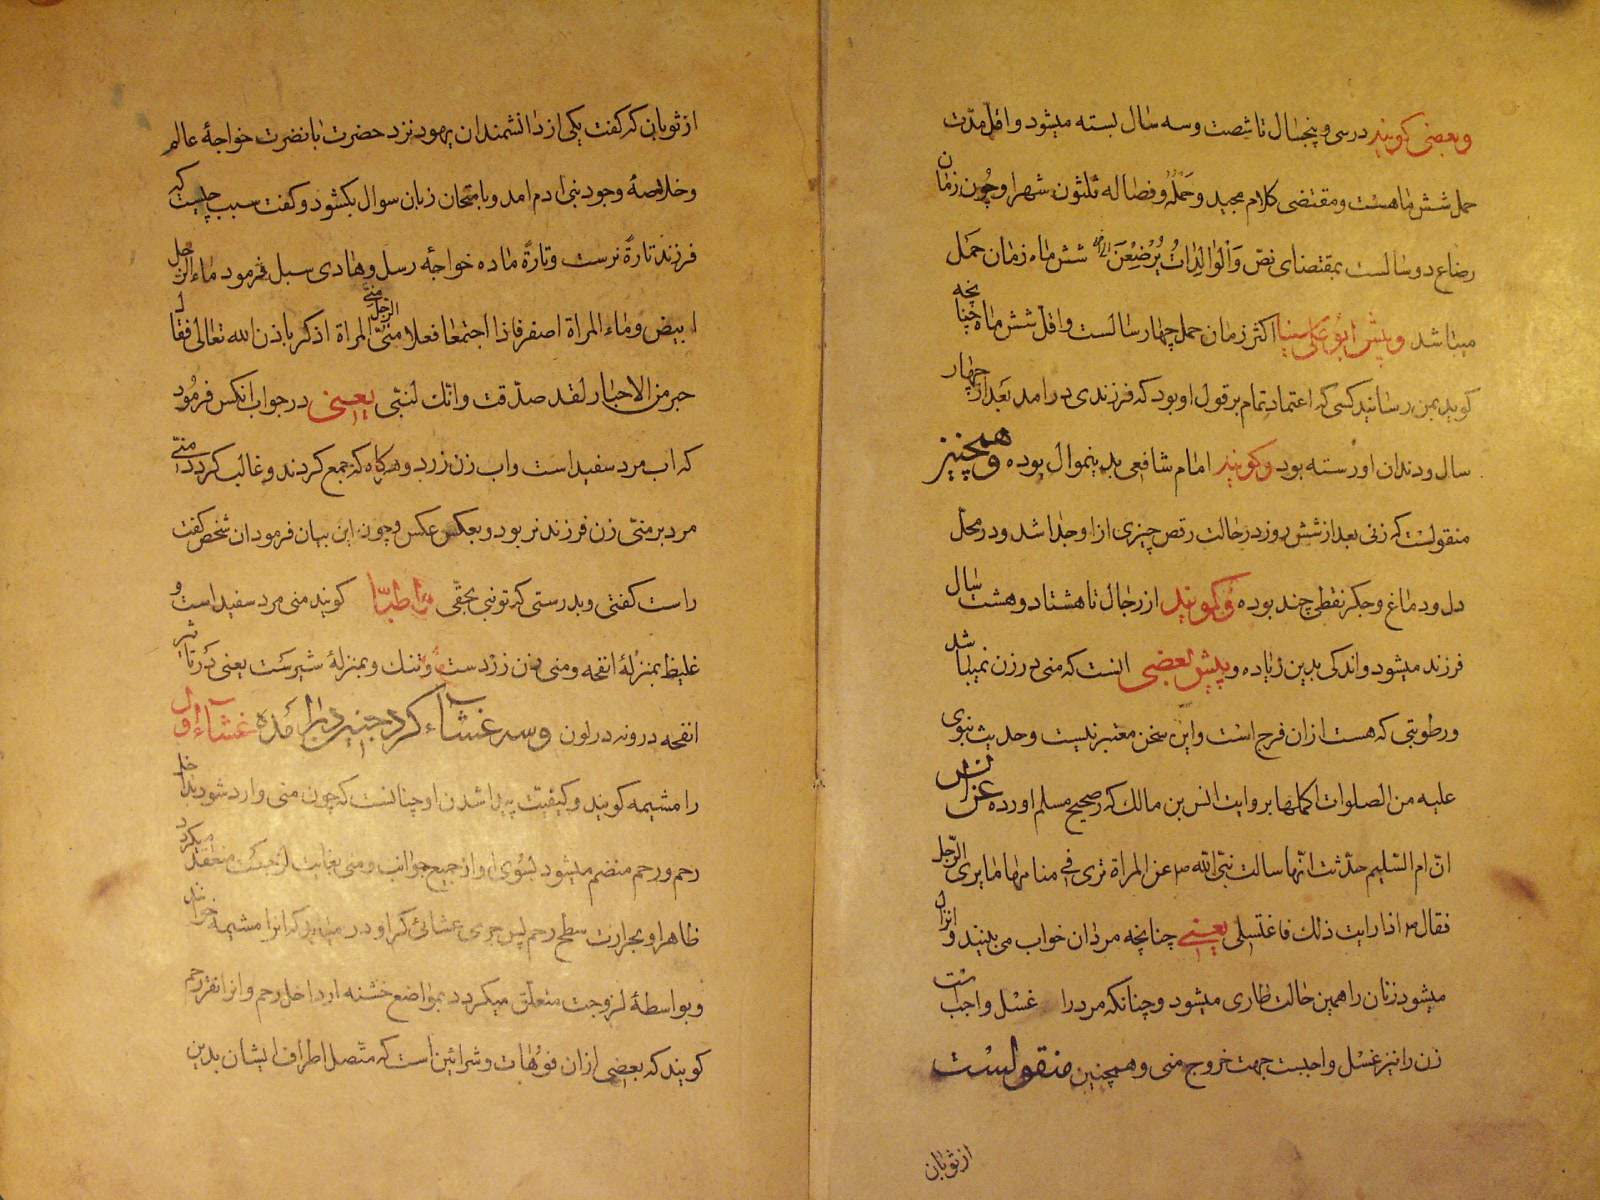 وبعضی کویند درسی و پنجسال تا شصت وسه سال بسته میشود واقل مدت
حمل شش ماهست ومقتضی کلام مجید وحمله وفصاله ثلثون شهرا وچون زمان
رضاع دوسالست بمقتضای نص وَالْوالِداتُ يُرْضِعْنَ شش ماه زمان حمل
میباشد وپیش ابوعلی سینا اکثر زمان حمل چهار سالست واقل شش ماه چنانچه
کوید بمن رسانید کسی که اعتماد تمام بر قول او بود که فرزندی درامد بعد از چهار
سال ودندان او رسته بود وکویند امام شافعی بدینموال بوده وهمچنین
منقولست که زنی بعد از شش روز در حالت رقص چیزی ازاو جدا شد ودر محل
دل ودماغ وجکر نقطی چند بوده وکویند از رجال تا هشتاد وهشت سال
فرزند میشود واندکی بدین زیاده وپیش بعضی انست که منی در زن نمیباشد
ورطوبتی که هست ازان فرج است واین سخن معتبر نیست وحدیث نبوی
علیه من الصلوات اکملها بروایت انس بن مالک که در صحیح مسلم اورده عن انس
ان ام السلیم حدثت انها سالت نبی الله عن المراة تری فی منامها ما یری الرجل
فقال اذا رایت ذلک فاغتسلی یعنی چنانچه مردان خواب می بینند وانزال
میشود زنان را همین حالت طاری میشود وچنانکه مرد را غسل واجب است
زن را نیز غسل واجبست جهت خروج منی وهمچنین منقولست
از ثوبان
از ثوبان که کفت یکی از دانشمندان یهود نزد حضرت بانضرت خواجهٔ عالم
وخلاصهٔ وجود بنی ادم امد وبامتحان زبان سوال بکشود وکفت سبب چیست که
فرزند تارةً نرست وتارةً ماده خواجهٔ رسل وهادی سبل فرمود ماء الرجل
ابیض وماء المراة اصفر فاذا اجتمعا فعلا منی الرجل منی المراة اذکر باذن الله تعالی فقال
حبر من الاحبار لقد صدقت وانک لنبی یعنی در جواب انکس فرمود
که اب مرد سفید است واب زن زرد وهرکاه که جمع کردند وغالب کردد منی
مرد بر منی زن فرزند نر بود وبعکس عکس وچون این بیان فرمود ان شخص کفت
راست کفتی وبدرستی که تو نبی بحقی اطبا کویند منی مرد سفید است و
غلیظ بمنزلهٔ انفحه ومنی زن زردست وتنک وبمنزلهٔ شیرست یعنی تاثیر
انفحه درو نه در لون وسه غشاء کرد جنین درامده غشاء اول
را مشیمه کویند وکیفیت پیدا شدن او چنانست که چون منی وارد شود بداخل
رحم ورحم منضم میشود بسوی او از جمیع جوانب ومنی بغایت لزجست منعقد میکردد
ظاهر او بحرارت سطح رحم پس چیزی غشائی کرد او درمیاید که انرا مشیمه خوانند
وبواسطهٔ لزوجت متعلق میکردد بمواضع خشنه از داخل رحم وانرا نقر رحم
کویند که بعضی ازان فوهات وشرائین است که متصل اطراف ایشان بدین